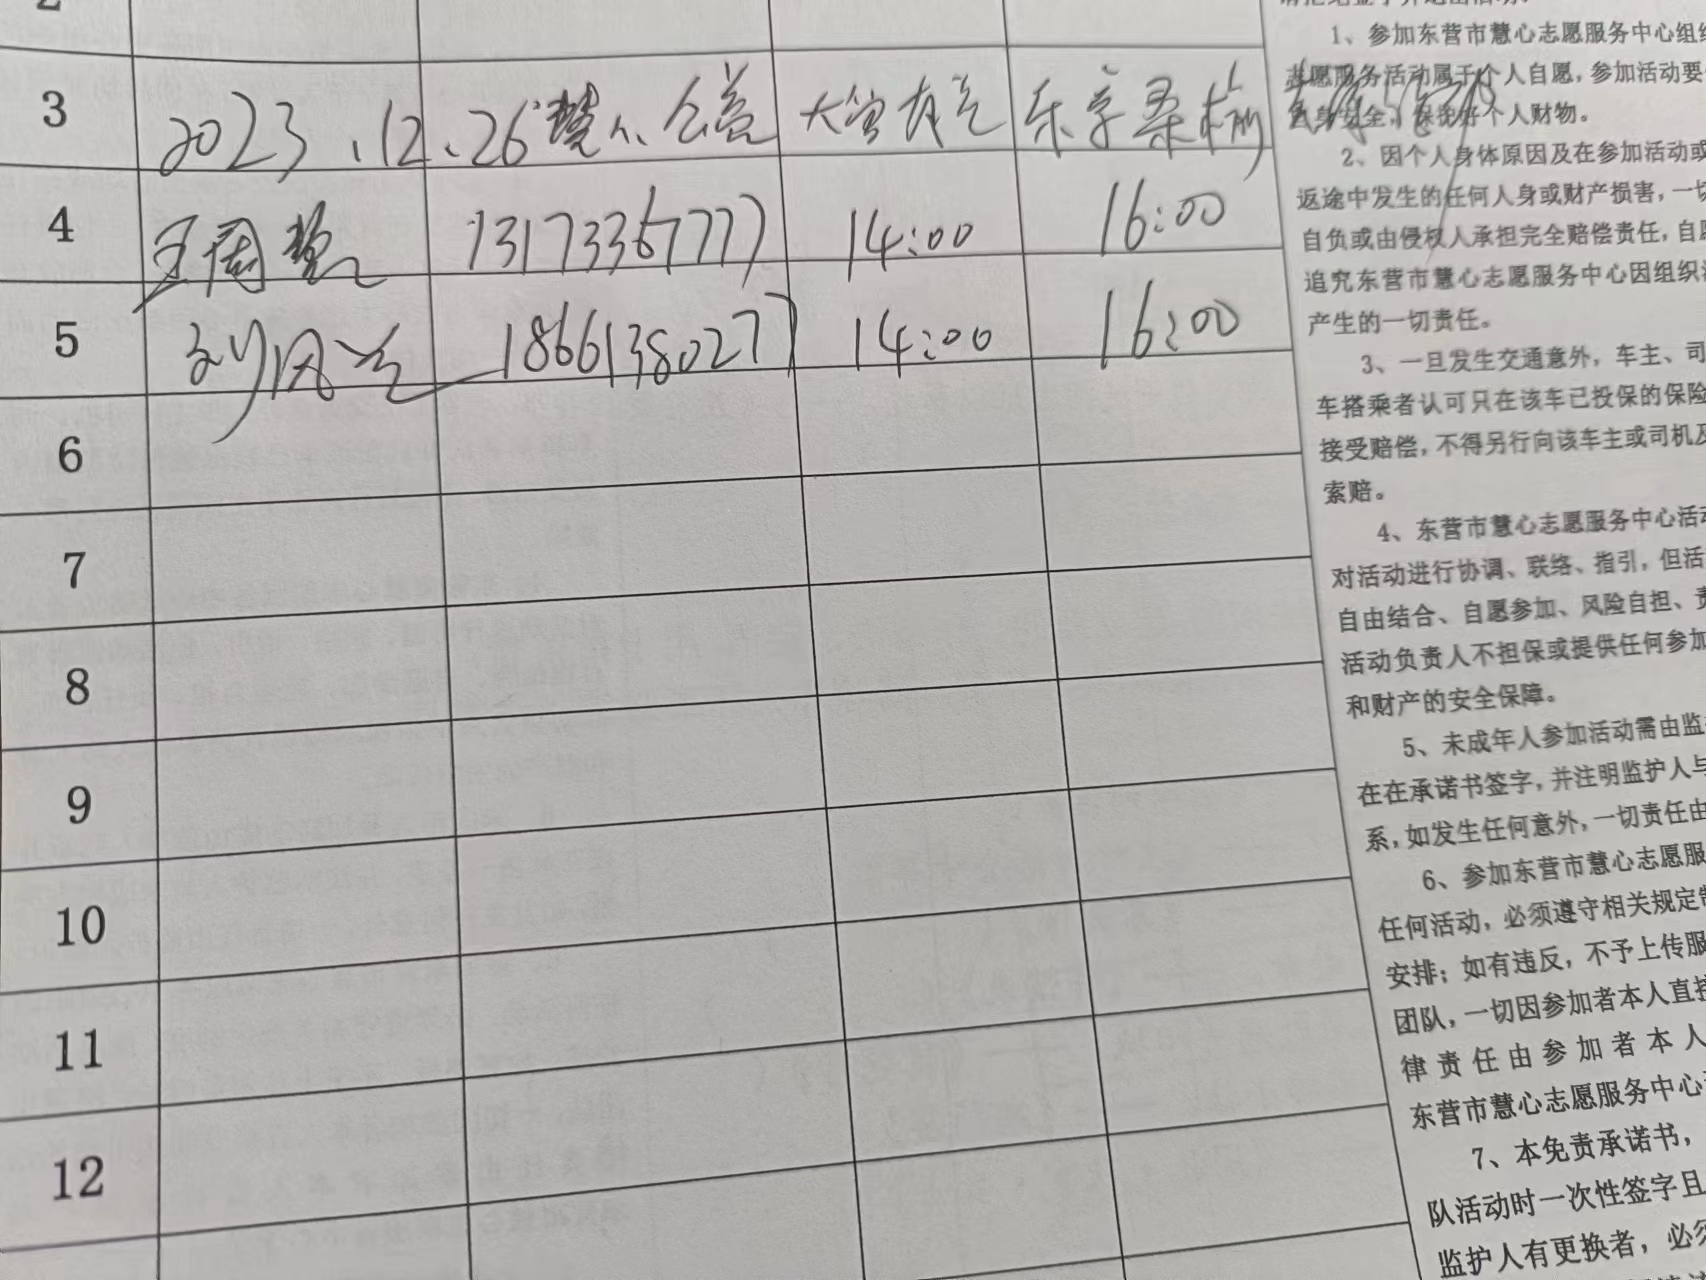 3 2023.12.26 慧心公益
4 13173367777 14:00 16:00
5 18661380277 14:00 16:00
6
7
8
9
10
11
12
1、参加东营市慧心志愿服务中心组织
志愿服务活动属于个人自愿，参加活动要
身安全，保护好个人财物。
2、因个人身体原因及在参加活动或
返途中发生的任何人身或财产损害，一切
自负或由侵权人承担完全赔偿责任，自愿
追究东营市慧心志愿服务中心因组织
产生的一切责任。
3、一旦发生交通意外，车主、司
车搭乘者认可只在该车已投保的保险
接受赔偿，不得另行向该车主或司机及
索赔。
4、东营市慧心志愿服务中心活动
对活动进行协调、联络、指引，但活
自由结合、自愿参加、风险自担、责
活动负责人不担保或提供任何参加
和财产的安全保障。
5、未成年人参加活动需由监
在在承诺书签字，并注明监护人与
系，如发生任何意外，一切责任由
6、参加东营市慧心志愿服
任何活动，必须遵守相关规定制
安排；如有违反，不予上传服
团队，一切因参加者本人直接
律责任由参加者本人
东营市慧心志愿服务中心
7、本免责承诺书，
队活动时一次性签字且
监护人有更换者，必须